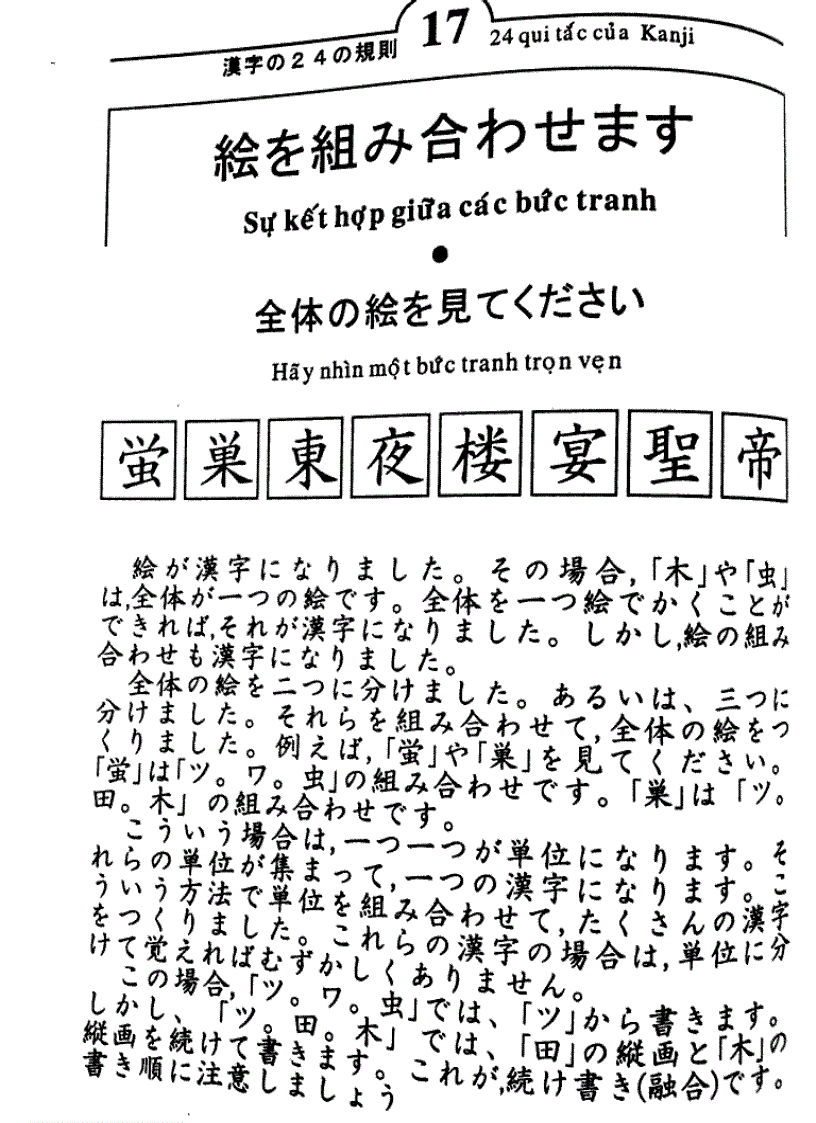 漢字の24の規則 17 24 qui tắc của Kanji
絵を組み合わせます
Sự kết hợp giữa các bức tranh
全体の絵を見てください
Hãy nhìn một bức tranh trọn vẹn
蛍 巣 東 夜 楼 宴 聖 帝
絵が漢字になりました。その場合,「木」や「虫」
は,全体が一つの絵です。全体を一つ絵でかくことが
できれば,それが漢字になりました。しかし,絵の組み
合わせも漢字になりました。
全体の絵を二つに分けました。あるいは、三つに
分けました。それらを組み合わせて,全体の絵をつ
くりました。例えば,「蛍」や「巣」を見てください。
「蛍」は「ツ。ワ。虫」の組み合わせです。「巣」は「ツ。
田。木」の組み合わせです。
こういう場合は,一つ一つが単位になります。そ
れらの単位が集まって,一つの漢字になります。こ
ういう方法で単位を組み合わせて,たくさんの漢字
をつくりました。これらの漢字の場合は,単位に分
けて覚えればむずかしくありません。
この場合,「ツ。ワ。虫」では、「ツ」から書きます。
しかし、「ツ。田。木」では、「田」の縦画と「木」の
縦画を続けて書きます。これが,続け書き(融合)です。
書き順に注意しましょう